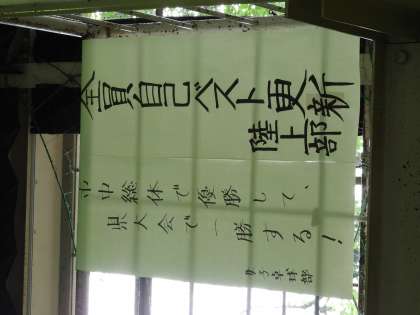 全員自己ベスト更新
陸上部
市中総体で優勝して、
県大会で一勝する!
男子卓球部